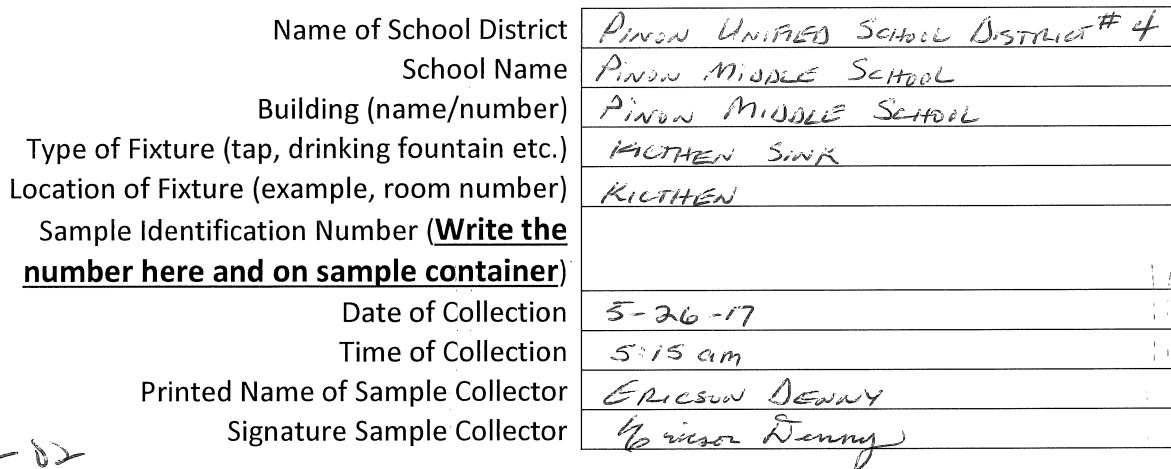 Name of School District PINON UNIFIED SCHOOL DISTRICT # 4
School Name PINON MIDDLE SCHOOL
Building (name/number) PINON MIDDLE SCHOOL
Type of Fixture (tap, drinking fountain etc.) KICTHEN SINK
Location of Fixture (example, room number) KICTHEN
Sample Identification Number (Write the
number here and on sample container)
Date of Collection 5-26-17
Time of Collection 5:15 am
Printed Name of Sample Collector ERICSON DENNY
Signature Sample Collector Ericson Denny
-02